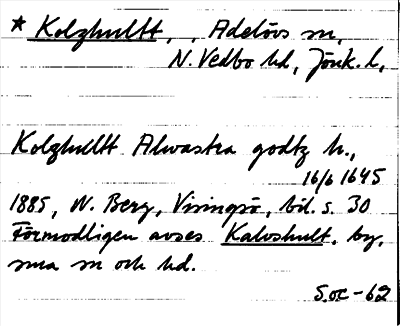 * Kolzhultt, , Adelövs sn,
N. Vedbo hd, Jönk. l,
Kolzhultt Alwastra godtz h.,
16/6 1645
1885, N. Berg, Visingsö, bil. s. 30
Förmodligen avses Kalvshult, by,
sma sn och hd.
S.oc -62